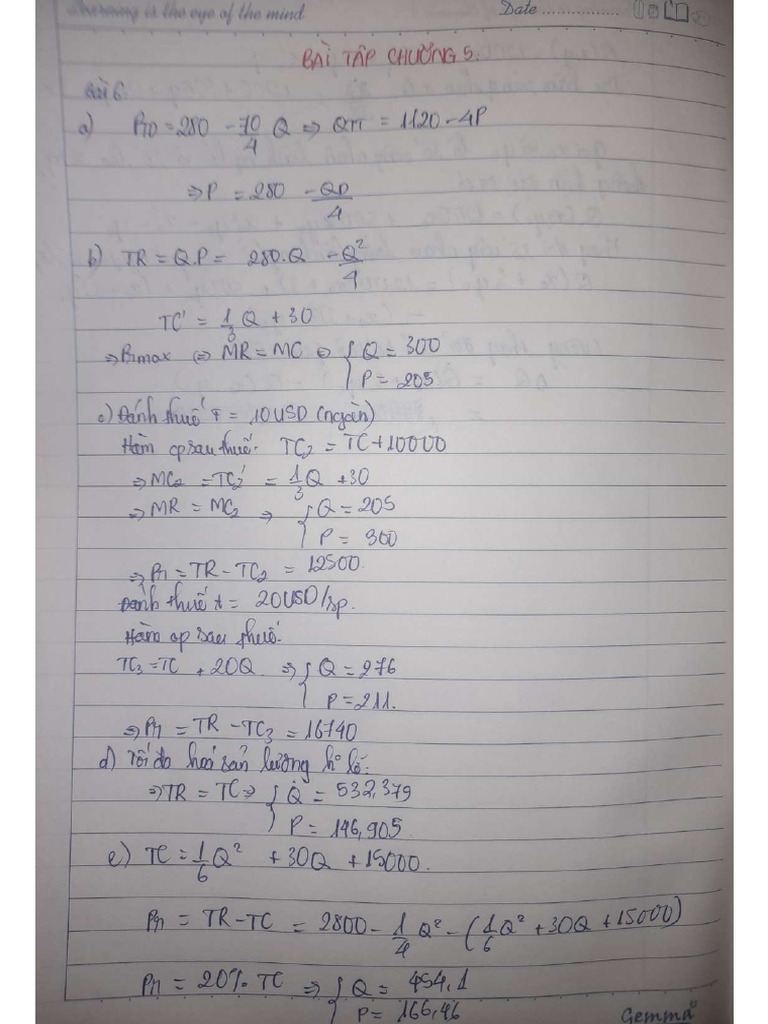 Learning is the eye of the mind Date ...............
BÀI TẬP CHƯƠNG 5.
Bài 6.
a) P10 = 280 - 70/4 Q => QTT = 1120 - 4P
=> P = 280 - QD/4
b) TR = Q.P = 280.Q - Q²/4
TC' = 1/3 Q + 30
=> Pr max <=> MR = MC => { Q = 300
P = 205
c) Đánh thuế T = 10USD (ngàn)
Hàm cp sau thuế. TC2 = TC + 10000
=> MC2 = TC2' = 1/3 Q + 30
=> MR = MC2 => { Q = 205
P = 300
=> Pr = TR - TC2 = 12500.
Đánh thuế t = 20USD/sp.
Hàm cp sau thuế.
TC3 = TC + 20Q => { Q = 276
P = 211.
=> Pr = TR - TC3 = 16740
d) Tối đa hoá sản lượng ko lỗ:
=> TR = TC => { Q = 532,379
P = 146,905
e) TC = 1/6 Q² + 30Q + 15000.
Pr = TR - TC = 2800 - 1/4 Q² - (1/6 Q² + 30Q + 15000)
Pr = 20% TC => { Q = 454.1
P = 166,46
Gemma